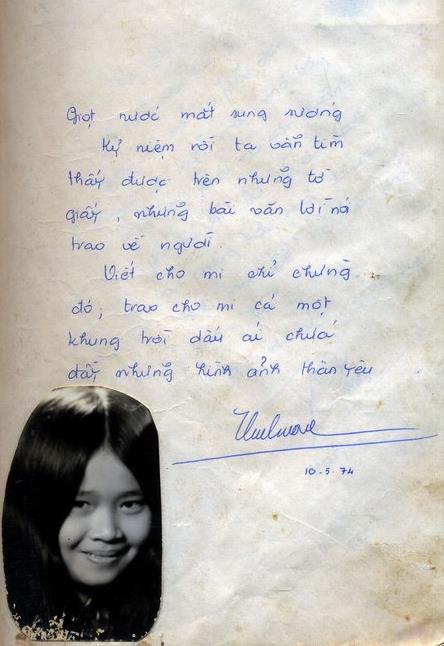 Giọt nước mắt sung sướng
Kỷ niệm rồi ta vẫn tìm
thấy được trên những tờ
giấy, những bài văn lời nó
trao về người.
Viết cho mi chỉ chừng
đó, trao cho mi cả một
khung trời dấu ái chứa
đầy những hình ảnh thân yêu
10.5.74